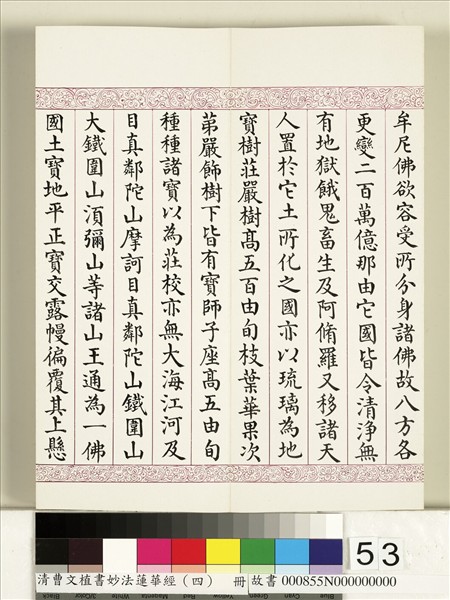 牟尼佛欲容受所分身諸佛故八方各
更變二百萬億那由它國皆令清淨無
有地獄餓鬼畜生及阿脩羅又移諸天
人置於它土所化之國亦以琉璃為地
寶樹莊嚴樹高五百由旬枝葉華果次
苐嚴飾樹下皆有寶師子座高五由旬
種種諸寶以為莊校亦無大海江河及
目真鄰陀山摩訶目真鄰陀山鐵圍山
大鐵圍山湏彌山等諸山王通為一佛
國土寶地平正寶交露幔徧覆其上懸
53
清曹文植書妙法蓮華經（四） 冊 故書 000855N000000000